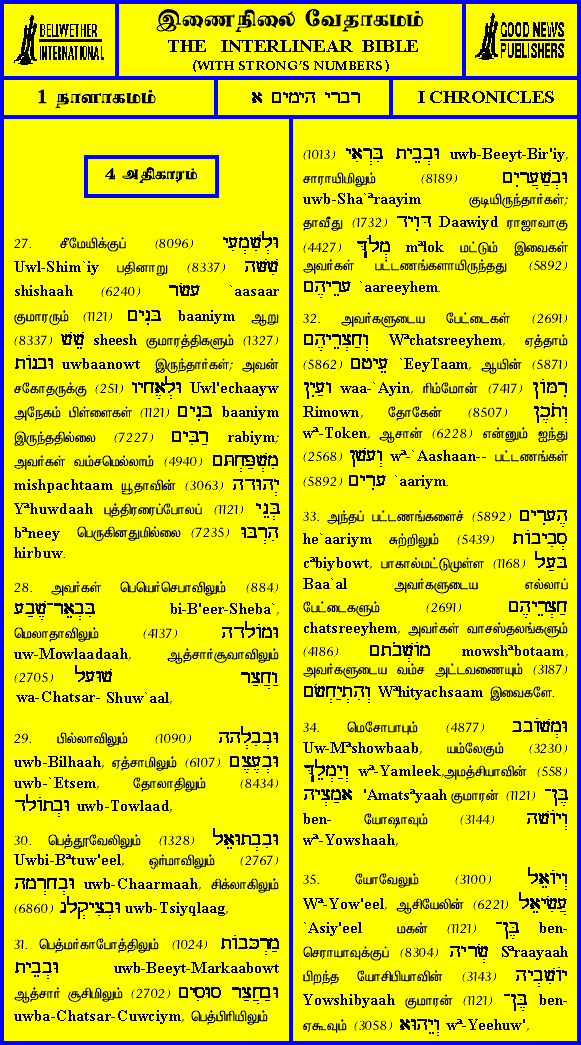 BELLWETHER
INTERNATIONAL
இணைநிலை வேதாகமம்
THE INTERLINEAR BIBLE
(WITH STRONG'S NUMBERS)
GOOD NEWS
PUBLISHERS
1 நாளாகமம்
דברי הימים א
I CHRONICLES
4 அதிகாரம்
27. சீமேயிக்குப் (8096) וּלְשִׁמְעִי
Uwl-Shim`iy பதினாறு (8337) שִׁשָּׁה
shishaah (6240) עָשָׂר `aasaar
குமாரரும் (1121) בָּנִים baaniym ஆறு
(8337) שֵׁשׁ sheesh குமாரத்திகளும் (1327)
וּבָנוֹת uwbaanowt இருந்தார்கள்; அவன்
சகோதரருக்கு (251) וּלְאֶחָיו Uwl'echaayw
அநேகம் பிள்ளைகள் (1121) בָּנִים baaniym
இருந்ததில்லை (7227) רַבִּים rabiym;
அவர்கள் வம்சமெல்லாம் (4940) מִשְׁפַּחְתָּם
mishpachtaam யூதாவின் (3063) יְהוּדָה
Yªhuwdaah புத்திரரைப்போலப் (1121) בְּנֵי
bªneey பெருகினதுமில்லை (7235) הִרְבּוּ
hirbuw.
28. அவர்கள் பெயெர்செபாவிலும் (884)
בִּבְאֵר־שֶׁבַע bi-B'eer-Sheba`,
மெலாதாவிலும் (4137) וּמוֹלָדָה
uw-Mowlaadaah, ஆத்சார்சூவாவிலும்
(2705) וַחֲצַר שׁוּעָל
wa-Chatsar- Shuw`aal,
29. பில்லாவிலும் (1090) וּבְבִלְהָה
uwb-Bilhaah, ஏத்சாமிலும் (6107) וּבְעֶצֶם
uwb-`Etsem, தோலாதிலும் (8434)
וּבְתוֹלָד uwb-Towlaad,
30. பெத்தூவேலிலும் (1328) וּבִבְתוּאֵל
Uwbi-Bªtuw'eel, ஒர்மாவிலும் (2767)
וּבְחָרְמָה uwb-Chaarmaah, சிக்லாகிலும்
(6860) וּבְצִיקְלָג uwb-Tsiyqlaag,
31. பெத்மர்காபோத்திலும் (1024) מַרְכָּבוֹת
וּבְבֵית uwb-Beeyt-Markaabowt
ஆத்சார் சூசிமிலும் (2702) וּבַחֲצַר סוּסִים
uwba-Chatsar-Cuwciym, பெத்பிரியிலும்
(1013) וּבְבֵית בִּרְאִי uwb-Beeyt-Bir'iy,
சாராயிமிலும் (8189) וּבְשַׁעֲרָיִם
uwb-Sha`ªraayim குடியிருந்தார்கள்;
தாவீது (1732) דָּוִיד Daawiyd ராஜாவாகு
(4427) מְלֹךְ mªlok மட்டும் இவைகள்
அவர்கள் பட்டணங்களாயிருந்தது (5892)
עָרֵיהֶם `aareeyhem.
32. அவர்களுடைய பேட்டைகள் (2691)
וְחַצְרֵיהֶם Wªchatsreeyhem, ஏத்தாம்
(5862) עֵיטָם `EeyTaam, ஆயின் (5871)
וָעַיִן waa-`Ayin, ரிம்மோன் (7417) רִמּוֹן
Rimown, தோகேன் (8507) וְתֹכֶן
wª-Token, ஆசான் (6228) என்னும் ஐந்து
(2568) וְעָשָׁן wª-`Aashaan-- பட்டணங்கள்
(5892) עָרִים `aariym.
33. அந்தப் பட்டணங்களைச் (5892) הֶעָרִים
he`aariym சுற்றிலும் (5439) סְבִיבוֹת
cªbiybowt, பாகால்மட்டுமுள்ள (1168) בָּעַל
Baa`al அவர்களுடைய எல்லாப்
பேட்டைகளும் (2691) חַצְרֵיהֶם
chatsreeyhem, அவர்கள் வாசஸ்தலங்களும்
(4186) מוֹשְׁבֹתָם mowshªbotaam,
அவர்களுடைய வம்ச அட்டவணையும் (3187)
וְהִתְיַחְשָׂם Wªhityachsaam இவைகளே.
34. மெசோபாபும் (4877) וּמְשׁוֹבָב
Uw-Mªshowbaab, யம்லேகும் (3230)
וְיַמְלֵךְ wª-Yamleek,அமத்சியாவின் (558)
אֲמַצְיָה 'Amatsªyaah குமாரன் (1121) בֶּן־
ben- யோஷாவும் (3144) וְיוֹשָׁה
wª-Yowshaah,
35. யோவேலும் (3100) וְיוֹאֵל
Wª-Yow'eel, ஆசியேலின் (6221) עֲשִׂיאֵל
`Asiy'eel மகன் (1121) בֶּן־ ben-
செராயாவுக்குப் (8304) שְׂרָיָה Sªraayaah
பிறந்த யோசிபியாவின் (3143) יוֹשִׁבְיָה
Yowshibyaah குமாரன் (1121) בֶּן־ ben-
ஏகூவும் (3058) וְיֵהוּא wª-Yeehuw',